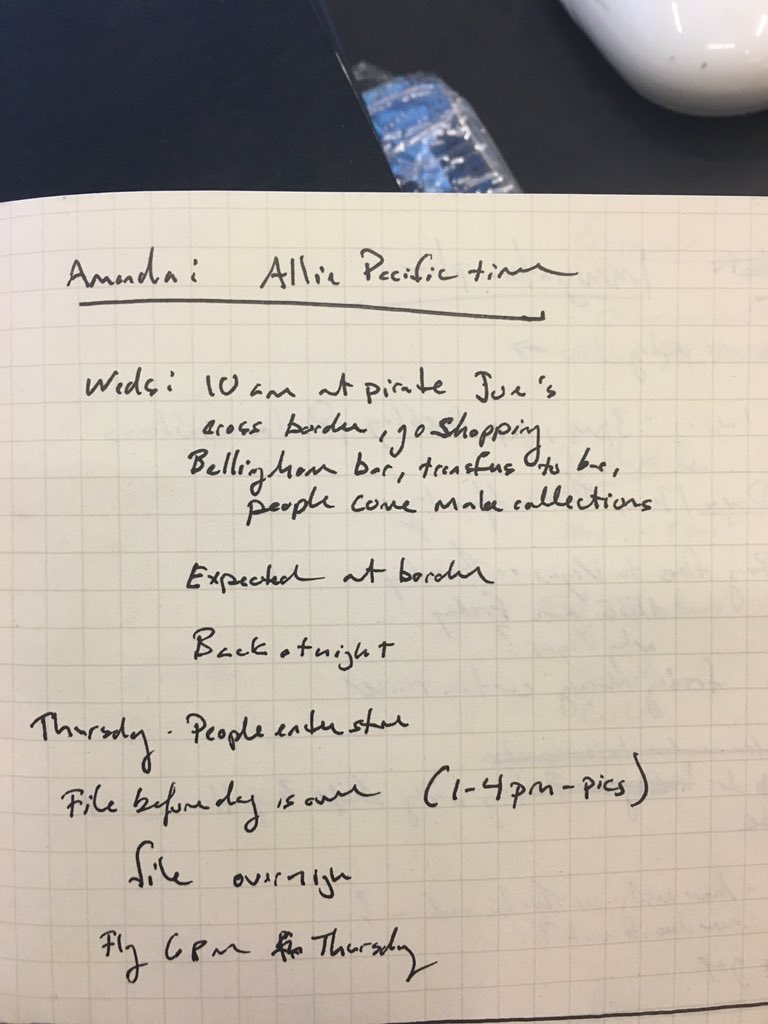 Amanda: Allie Pacific time
Weds: 10 am at pirate Joe's
cross border, go shopping
Bellingham bar, transfers to be,
people come make collections
Expected at border
Back at night
Thursday - People enter store
File before day is over (1-4pm-pics)
file overnigh
Fly 6pm Thursday